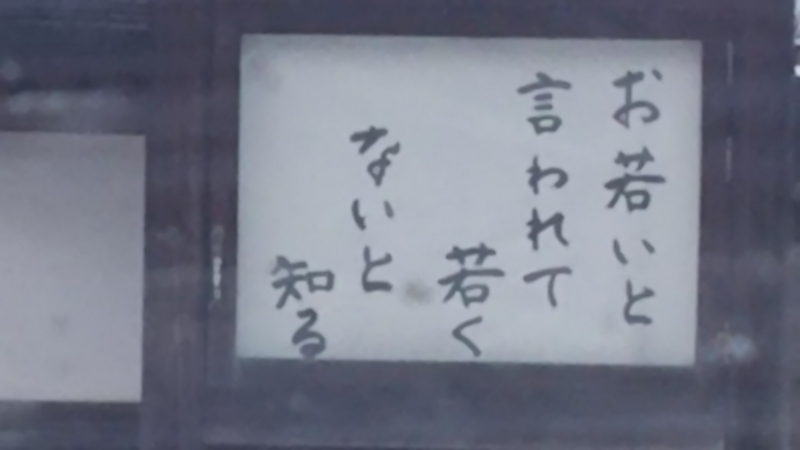 お若いと
言われて
若く
ないと
知る